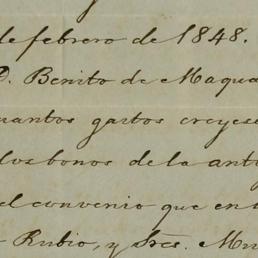 de febrero de 1848.
D. Benito de Maqua
uantos gastos creyese
los bonos de la anti
el convenio que en
Rubio, y Sres. Mu